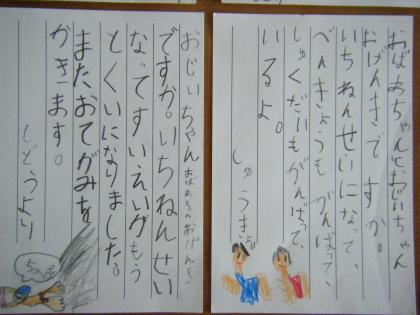 おばあちゃんとおじいちゃん
おげんきですか。
いちねんせいになって、
べんきょうも がんばって、
しゅくだいもがんばって、
いるよ。
しゅうきより
おじいちゃんおばあちゃんおげんき
ですか。いちねんせい
なってすいえいがもう
とくいになりました。
またおてがみを
かきます。
しどうより